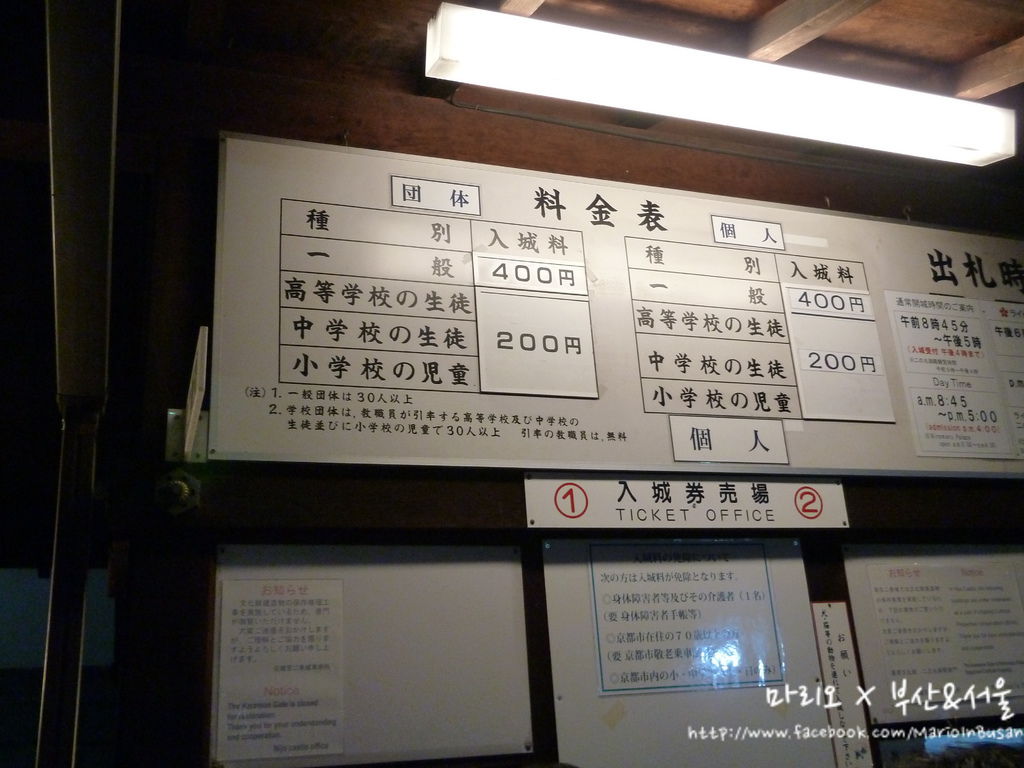 料金表
団体
種別 入城料
一般 400円
高等学校の生徒
中学校の生徒 200円
小学校の児童
(注) 1. 一般団体は30人以上
2. 学校団体は、教職員が引率する高等学校及び中学校の
生徒並びに小学校の児童で30人以上 引率の教職員は、無料
個人
種別 入城料
一般 400円
高等学校の生徒
中学校の生徒 200円
小学校の児童
個人
出札時
通常開城時間のご案内
午前8時45分
〜午後5時
(入城受付 午後4時まで)
Day Time
a.m.8:45
〜p.m.5:00
(admission p.m.4:00)
① 入城券売場 ②
TICKET OFFICE
お知らせ
Notice
The Karamon Gate is closed
for restoration.
Thank you for your understanding
and cooperation.
Nijo castle office
入城料の免除について
次の方は入城料が免除となります。
◎身体障害者等及びその介護者(1名)
(要 身体障害者手帳等)
◎京都市在住の70歳以上の方
(要 京都市敬老乗車
◎京都市内の小・中
お願い
お知らせ Notice
마리오 X 부산&서울
http://www.facebook.com/MarioInBusan